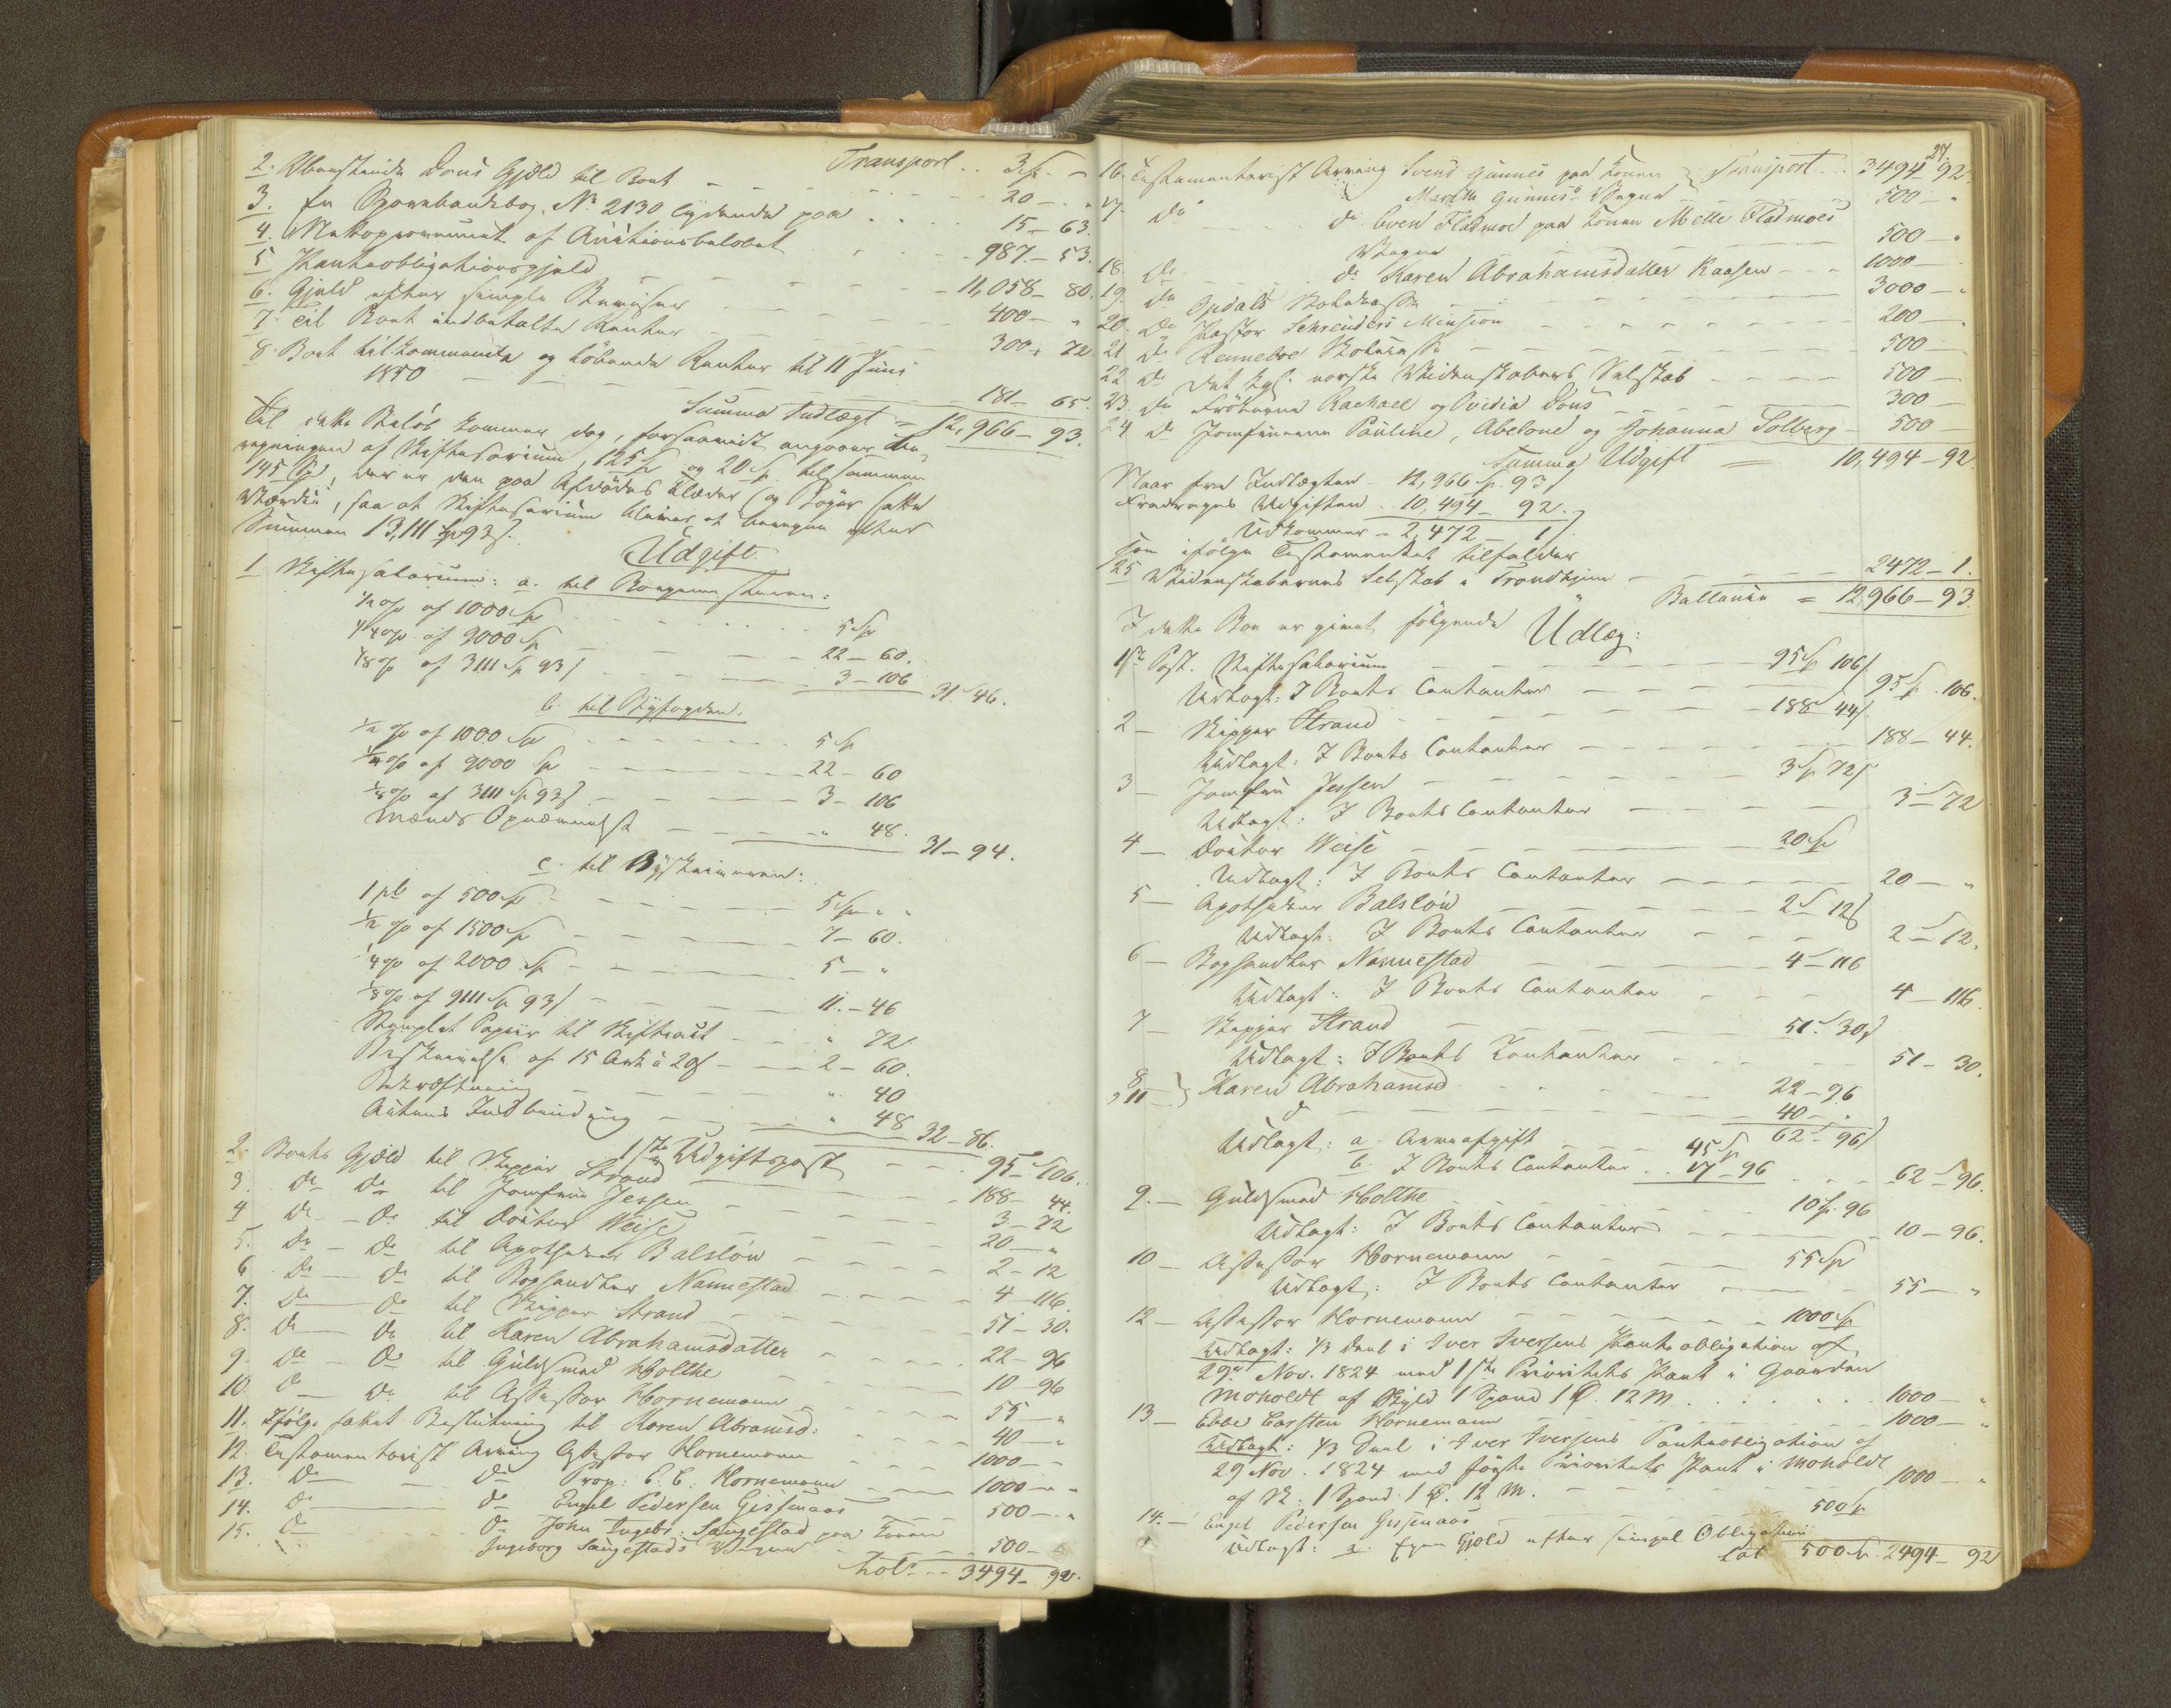 Transport . . 3 Sp. - „
2. Udenstaaende Dons Gjæld til Boet — 20 — „
3. En Sparebankbog No 2130 lydende paa . . . 15 — 63.
4. Nettoprovenuet af Auctionsbeløbet 987 — 53.
5. Panteobligationsgjæld — 11,058 — 80.
6. Gjæld efter simple Beviser — 400 — „
7. Til Boet indbetalte Renter — 300 — 72.
8. Boet tilkommende og løbende Renter til 11 Juni
1850 — 181 — 65.
Summa Indtægt = 12,966 — 93.
Til dette Beløb kommer dog, forsaavidt angaaer Be-
regningen af Skiftesalarium, 125 Sp og 20 Sp tilsammen
145 Sp, der er den paa Afdødes Klæder og Bøger satte
Værdie, saa at Skiftesalarium bliver at beregne efter
Summen 13,111 Sp 93 s.
Udgift.
1 Skiftesalarium: a. til Borgemesteren:
1/2 % af 1000 Sp — 5 Sp
1/4 % af 9000 Sp — 22 — 60.
1/8 % af 3111 Sp 93 s — 3 — 106 31 — 46.
b. til Byfogden.
1/2 % af 1000 Sp — 5 Sp
1/4 % af 9000 Sp — 22 — 60
1/8 % af 3111 Sp 93 s — 3 — 106
Mænds Opnævnelse — „ 48. 31 — 94.
c. til Byskriveren:
1 pCt af 500 Sp — 5 Sp „ „
1/2 % af 1500 Sp — 7 — 60.
1/4 % af 2000 Sp — 5 — „
1/8 % af 9111 Sp 93 s — 11. — 46
Stemplet Papiir til Skifteact — „ 72
Beskrivelse af 15 Ark à 20 s — 2 — 60.
Bekræftning — „ 40
Actens Indbinding — „ 48 32 — 86.
1ste Udgiftspost — 95 — 106.
2. Boets Gjæld til Skipper Strand — 188 — 44.
3. Do Do til Jomfru Jessen — 3 — 72
4 Do — Do til Doctor Weise — 20 — „
5. Do — Do til Apotheker Balslöw — 2 — 12
6 Do — Do til Boghandler Nannestad — 4 — 116.
7. Do — Do til Skipper Strand — 51 — 30.
8. Do — Do til Karen Abrahamsdatter — 22 — 96
9. Do — Do til Guldsmed Holthe — 10 — 96
10. Do — Do til Assessor Hornemann — 55 — „
11. Ifølge fattet Beslutning til Karen Abramsd: — 40 — „
12. Testamentarisk Arving Assessor Hornemann — 1000 — „
13. Do — Do Prop: E. C. Hornemann — 1000 — „
14. Do — Do Engel Pedersen Gissinaas — 500 — „
15. Do — Do John Ingebr: Saugestad paa Konen
Ingeborg Saugestads Vegne — 500 —
Lat. — 3494 — 92.
27.
16. Testamentarisk Arving Svend Gunnes paa Konen Transport . . 3494 — 92.
Marith Gunnes's Vegne 500 — „
17. Do Do Even Fladmoe paa Konen Mette Fladmoes
Vegne — 500 — „
18. Do Do Karen Abrahamsdatter Kaasen — 1000 —
19. Do Opdals Skolekasse — 3000 — „
20. Do Pastor Schreuders Mission — 200 — „
21 Do Renneboe Skolekasse — 500 —
22 Do Det kgl. norske Videnskabers Selskab — 500 —
23. Do Frøknerne Rachael og Ovidia Dons — 300 —
24 Do Jomfruerne Pauline, Abelone og Johanna Solberg — 500 —
Summa Udgift = 10,494 — 92
Naar fra Indtægten — 12,966 Sp. 93 s
Fradrages Udgiften . . 10,494 — 92.
Udkommer — 2,472 — 1 s.
som ifølge Testamentet tilfalder
25 Videnskabernes Selskab i Trondhjem — 2472 — 1.
Ballance = 12,966 — 93.
I dette Boe er giort følgende Udlæg:
1ste Post. Skiftesalarium — 95 Sp 106 s
Udlagt: I Boets Contanter — 95 Sp. 106.
2 — Skipper Strand — 188 — 44 s
Udlagt: I Boets Contanter — 188 — 44.
3 — Jomfru Jessen — 3 Sp 72 s
Udlagt: I Boets Contanter — 3 — 72
4 — Doctor Weise — 20 Sp
Udlagt: I Boets Contanter — 20 — „
5 — Apotheker Balslöw — 2 — 12 s
Udlagt: I Boets Contanter — 2 — 12.
6 — Boghandler Nannestad — 4 — 116
Udlagt: I Boets Contanter — 4 — 116.
7 — Skipper Strand — 51 — 30 s
Udlagt: I Boets Contanter — 51 — 30.
8 Karen Abrahamsd — 22 — 96
„ 11 — } Do — 40 — „
62 — 96 s
Udlagt: a. Arveafgift — 45 Sp
b. I Boets Contanter . . 17 — 96 — 62 — 96.
9. — Guldsmed Holthe — 10 Sp. 96
Udlagt: I Boets Contanter — 10 — 96.
10 — Assessor Hornemann — 55 Sp
Udlagt: I Boets Contanter — 55 — „
12 — Assessor Hornemann — 1000 Sp
Udlagt: 1/3 Deel i Iver Iversens Panteobligation af
29de Nov. 1824 med 1ste Prioritets Pant i Gaarden
Moholdt af Skyld 1 Spand 1 Ø. 12 M . . . . 1000 — „
13 — Ebbe Carsten Hornemann — 1000 — „
Udlagt: 1/3 Deel i Iver Iversens Panteobligation af
29 Nov. 1824 med første Prioritets Pant i Moholdt
af Sk: 1 Spand 1 Ø. 12 M. — 1000 — „
14. — Engel Pedersen Gissinaas — 500 Sp
Udlagt: a. Egen Gjæld efter simpel Obligation
Lat 500 Sp. 2494 — 92